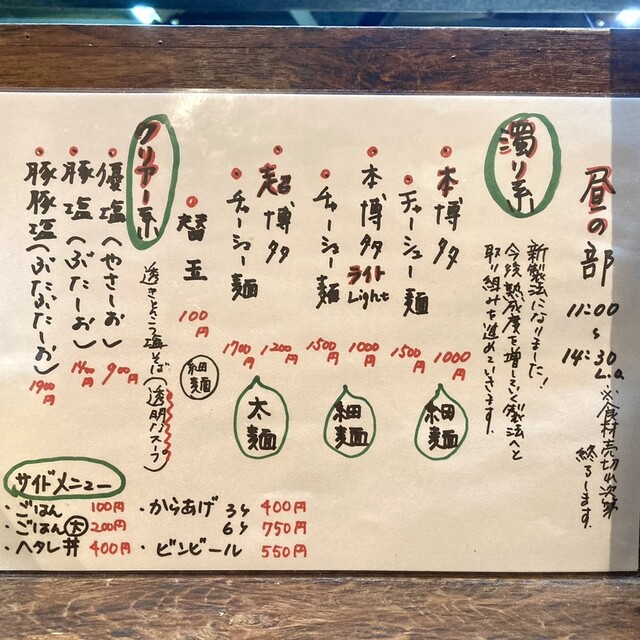 昼の部
11:00
~
14:30
L.o.
※食材売切れ次第
終了します。
濁り系
新製法になりました!
今後熟成度を増していく製法へと
取り組みを進めていきます。
本博多
1000円
チャーシュー麺
1500円
細麺
本博多ライト
Light
1000円
チャーシュー麺
1500円
細麺
超博多
1200円
チャーシュー麺
1700円
太麺
替玉
100円
細麺
クリアー系
透きとおった塩そば(透明スープ)
優塩(やさしお)
900円
豚塩(ぶたしお)
1400円
豚豚塩(ぶたぶたしお)
1900円
サイドメニュー
・ごはん 100円
・ごはん大 200円
・ヘタレ丼 400円
・からあげ 3ケ 400円
6ケ 750円
・ビンビール 550円